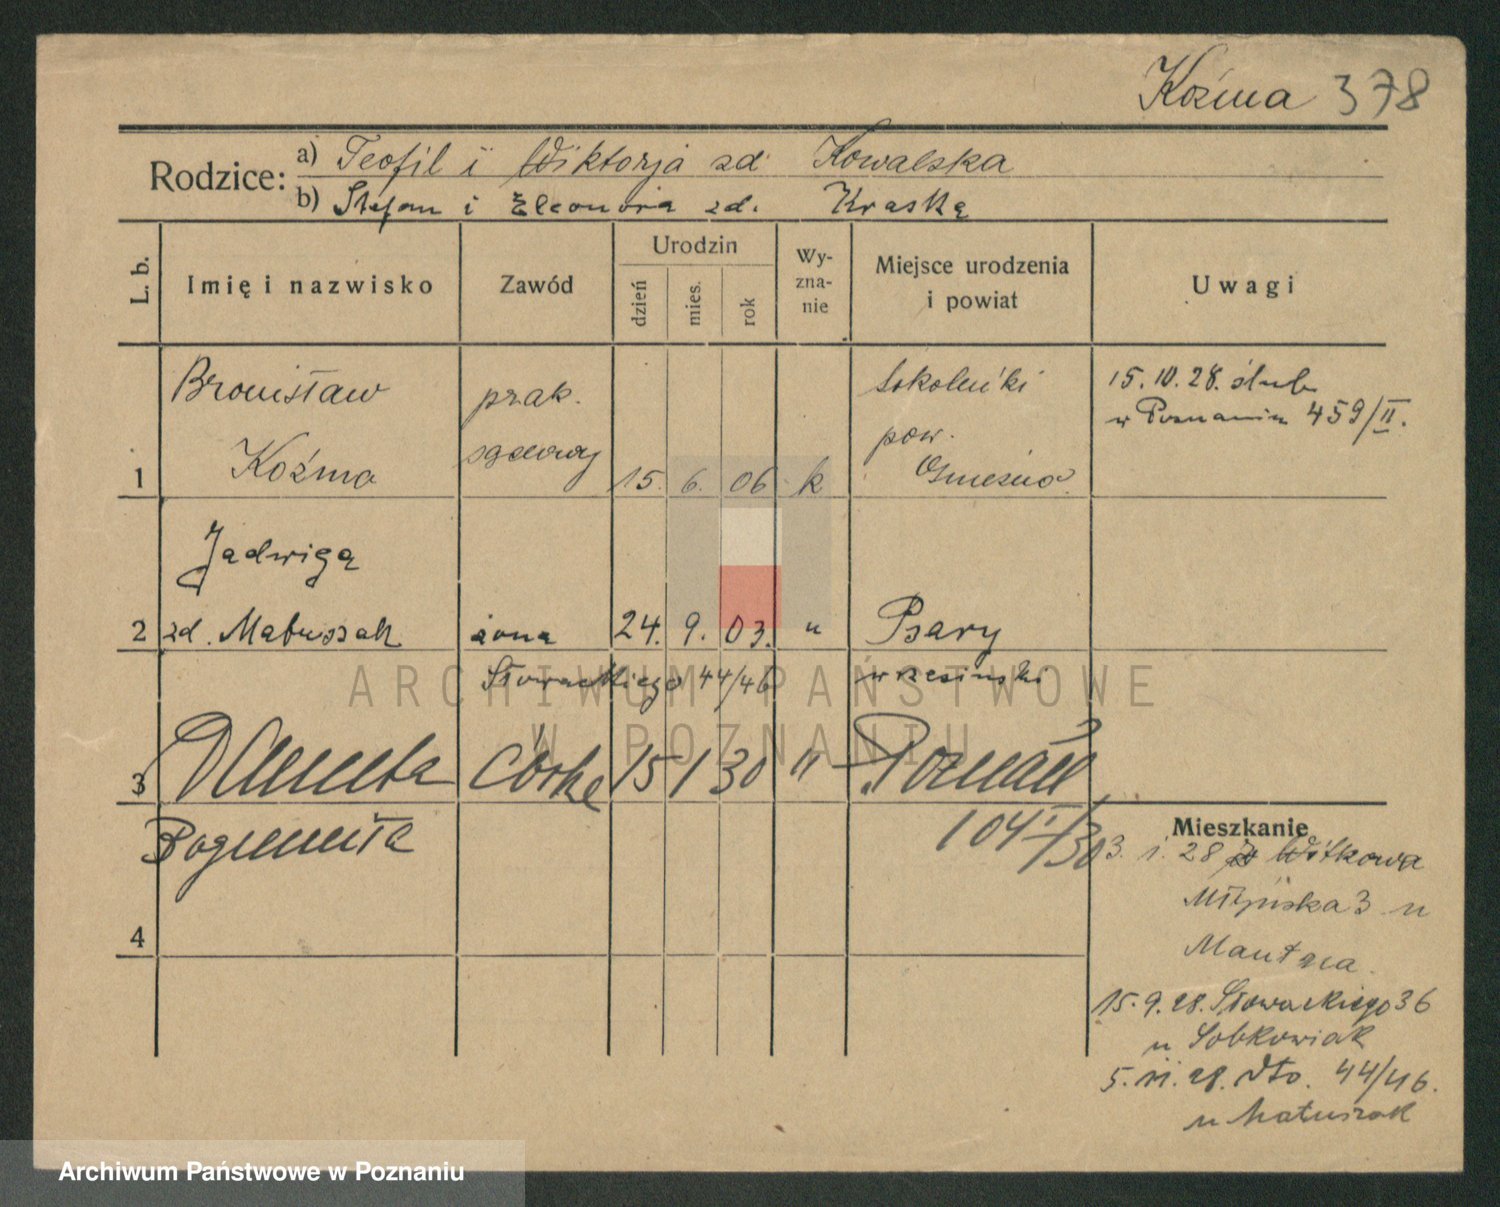 Koźma 378
Rodzice:
a) Teofil i Wiktorja zd Kowalska
b) Stefan i Eleonora zd. Kraska
L. b.
Imię i nazwisko
Zawód
Urodzin
dzień
mies.
rok
Wy-
zna-
nie
Miejsce urodzenia
i powiat
Uwagi
1
Bronisław
Koźma
prak.
sądowy
15. 6. 06 k
Sokolniki
pow.
Gniezno
15.10.28. ślub
w Poznaniu 459/II.
2
Jadwiga
zd. Matuszak
żona
24. 9. 03. "
Psary
wrzesiński
Słowackiego 44/46
3
Danuta
Bogumiła
Córka
15 1 30 "
Poznań
104/I/30
4
Mieszkanie
3. 1. 28 z Witkowa
3 u
15.9.28. Słowackiego 36
u Sobkowiak
5. 28. dto. 44/46.
u Matuszak
ARCHIWUM PAŃSTWOWE
W POZNANIU
Archiwum Państwowe w Poznaniu